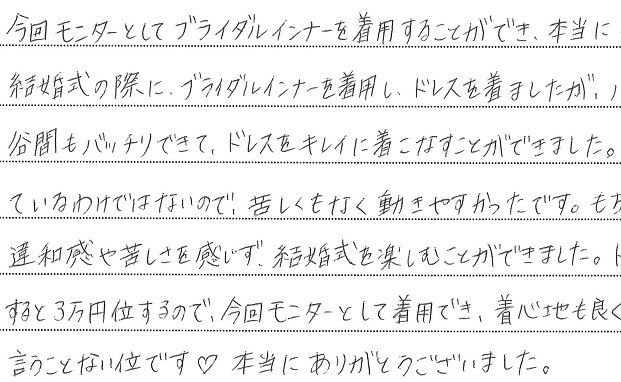 今回モニターとしてブライダルインナーを着用することができ、本当に
結婚式の際に、ブライダルインナーを着用し、ドレスを着ましたが、ハ
谷間もバッチリできて、ドレスをキレイに着こなすことができました。
ているわけではないので、苦しくもなく動きやすかったです。もち
違和感や苦しさを感じず、結婚式を楽しむことができました。ド
すると3万円位するので、今回モニターとして着用でき、着心地も良く
言うことない位です♡ 本当にありがとうございました。